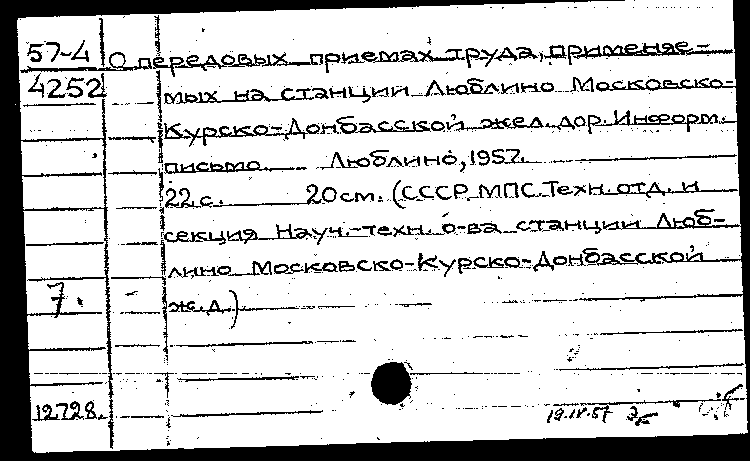 57-4 О передовых приемах труда, применяе-
4252 мых на станции Люблино Московско-
Курско-Донбасской жел. дор. Информ.
письмо. Люблино, 1957.
22 с. 20 см. (СССР. МПС. Техн. отд. и
секция Науч.-техн. о-ва станции Люб-
лино Московско-Курско-Донбасской
7. ж.д.)
12728.
19.IV.57